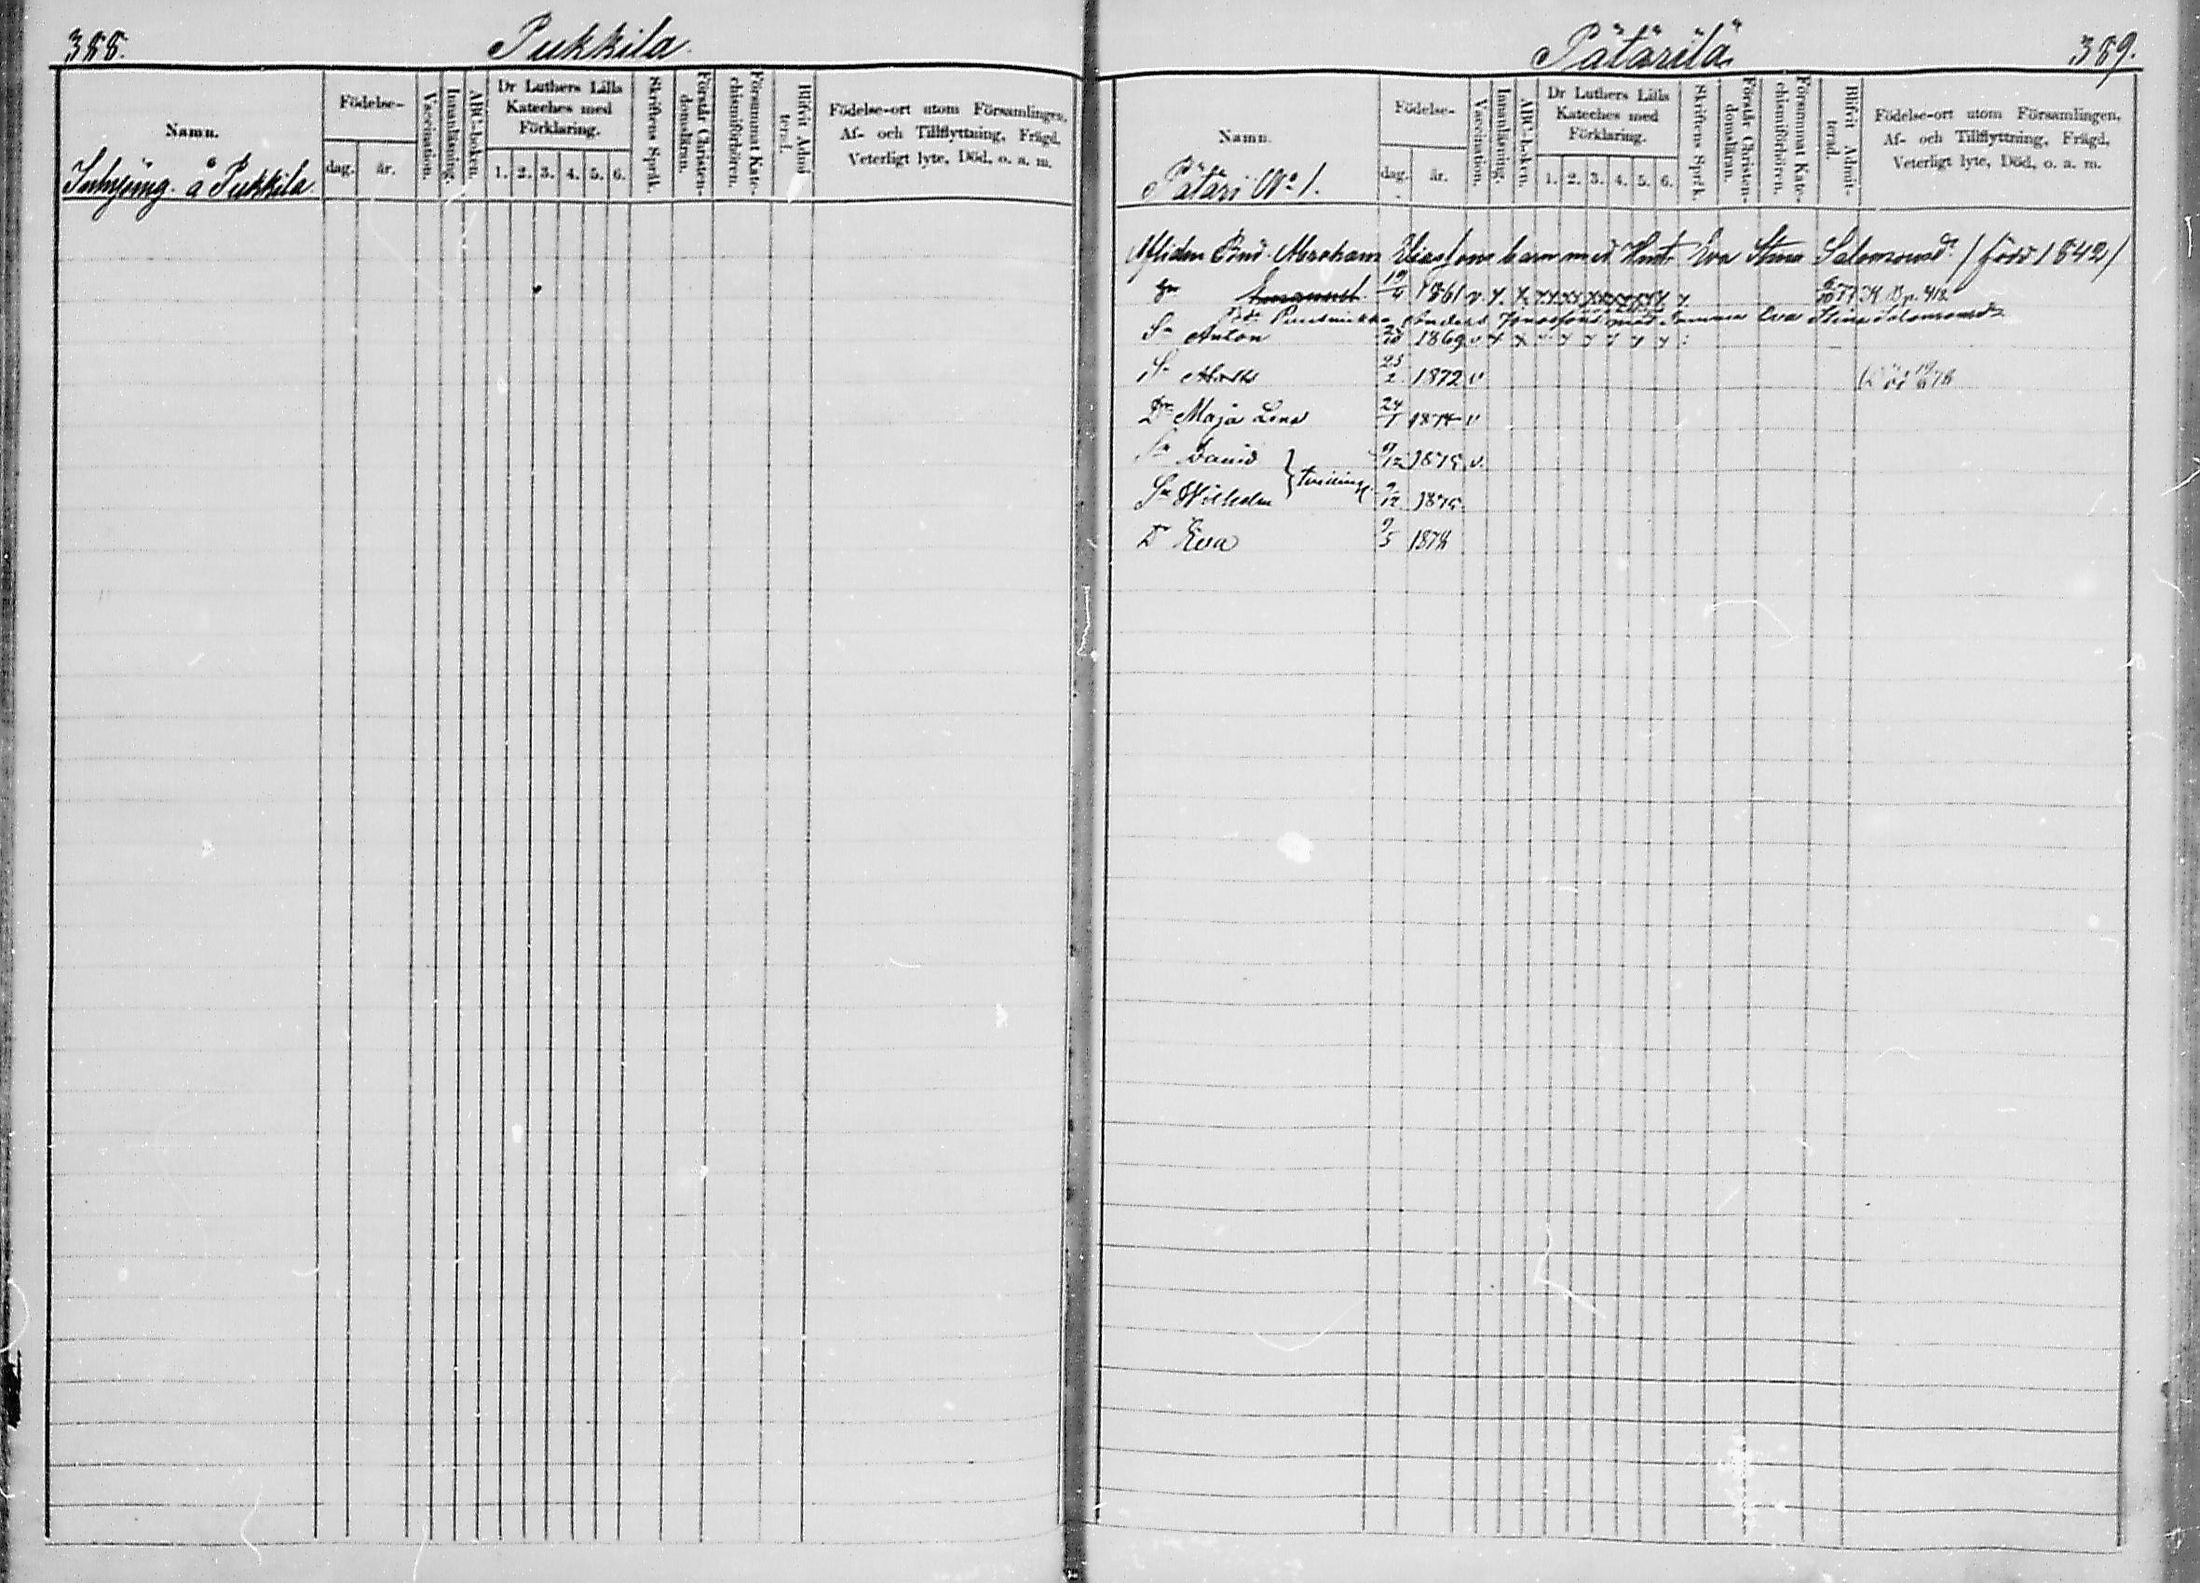 388.
Pukkila
Namn.
Födelse-
dag.
år.
Vaccination.
Innanläsning.
ABC-boken.
Dr Luthers Lilla
Kateches med
Förklaring.
1. 2. 3. 4. 5. 6.
Skriftens Språk.
Förstår Christen-
domsläran.
Försummat Kate-
chismiförhören.
Blifvit Admit-
terad.
Födelse-ort utom Församlingen,
Af- och Tillflyttning, Frägd,
Veterligt lyte, Död, o. a. m.
å Pukkila
Pätärilä
389.
Namn.
Födelse-
dag.
år.
Vaccination.
Innanläsning.
ABC-boken.
Dr Luthers Lilla
Kateches med
Förklaring.
1. 2. 3. 4. 5. 6.
Skriftens Språk.
Förstår Christen-
domsläran.
Försummat Kate-
chismiförhören.
Blifvit Admit-
terad.
Födelse-ort utom Församlingen,
Af- och Tillflyttning, Frägd,
Veterligt lyte, Död, o. a. m.
Pätäri No 1.
Afliden Bond. Abraham Eliassons barn med Hust. Eva Stina Salomonsd. (född 1842)
Emanuel 19/4 1861 v. x x x x x x x x x
Anders med Samma Eva Stina Salomonsdr
Sn Anton 1869 v x x x x x x x x
Sn 25/2 1872 v Död
Dr Maja Lena 24/1 1874 v
Sn David 9/12 1875 v.
Sn Wilhelm } tvilling 9/12 1875
Dr Eva 9/5 1878